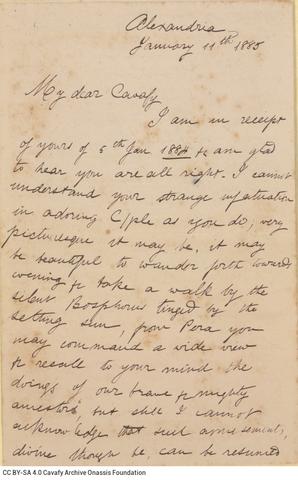 Alexandria
January 11th 1885
My dear Cavafy
I am in receipt
of yours of 5th Jan 1884 & am glad
to hear you are all right. I cannot
understand your strange infatuation
in adoring C/ple as you do; very
picturesque it may be, it may
be beautiful to wander forth towards
evening & take a walk by the
silent Bosphorus tinged by the
setting sun, from Pera you
may command a wide view
& recall to your mind the
doings of our brave & mighty
ancestors, but still I cannot
acknowledge that such amusements,
divine though be, can be resumed
CC BY-SA 4.0 Cavafy Archive Onassis Foundation